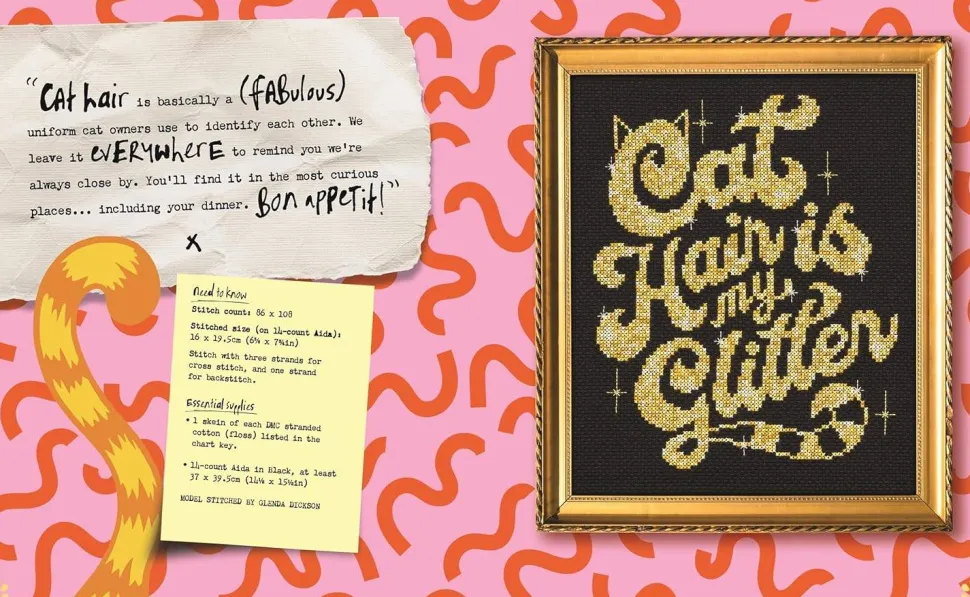 "CAt hair is basically a (fABulous)
uniform cat owners use to identify each other. We
leave it evERYwhERE to remind you we're
always close by. You'll find it in the most curious
places... including your dinner. Bon appetit!"
x
Need to know
Stitch count: 86 x 108
Stitched size (on 14-count Aida):
16 x 19.5cm (6¼ x 7¾in)
Stitch with three strands for
cross stitch, and one strand
for backstitch.
Essential supplies
• 1 skein of each DMC stranded
cotton (floss) listed in the
chart key.
• 14-count Aida in Black, at least
37 x 39.5cm (14½ x 15½in)
MODEL STITCHED BY GLENDA DICKSON
Cat
Hair is
my
Glitter